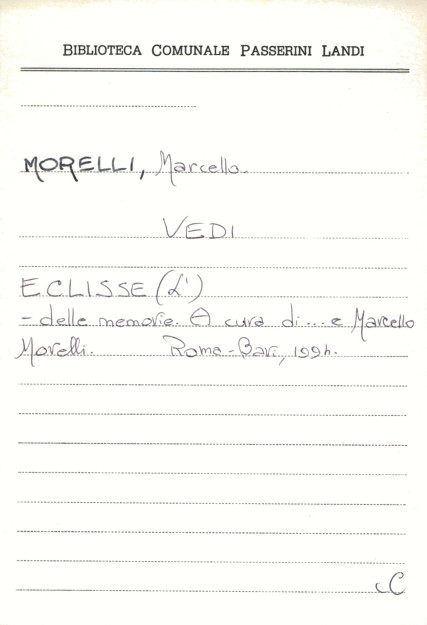 BIBLIOTECA COMUNALE PASSERINI LANDI
MORELLI, Marcello.
VEDI
ECLISSE (L')
- delle memorie. A cura di ... e Marcello
Morelli. Roma-Bari, 1994.
cC